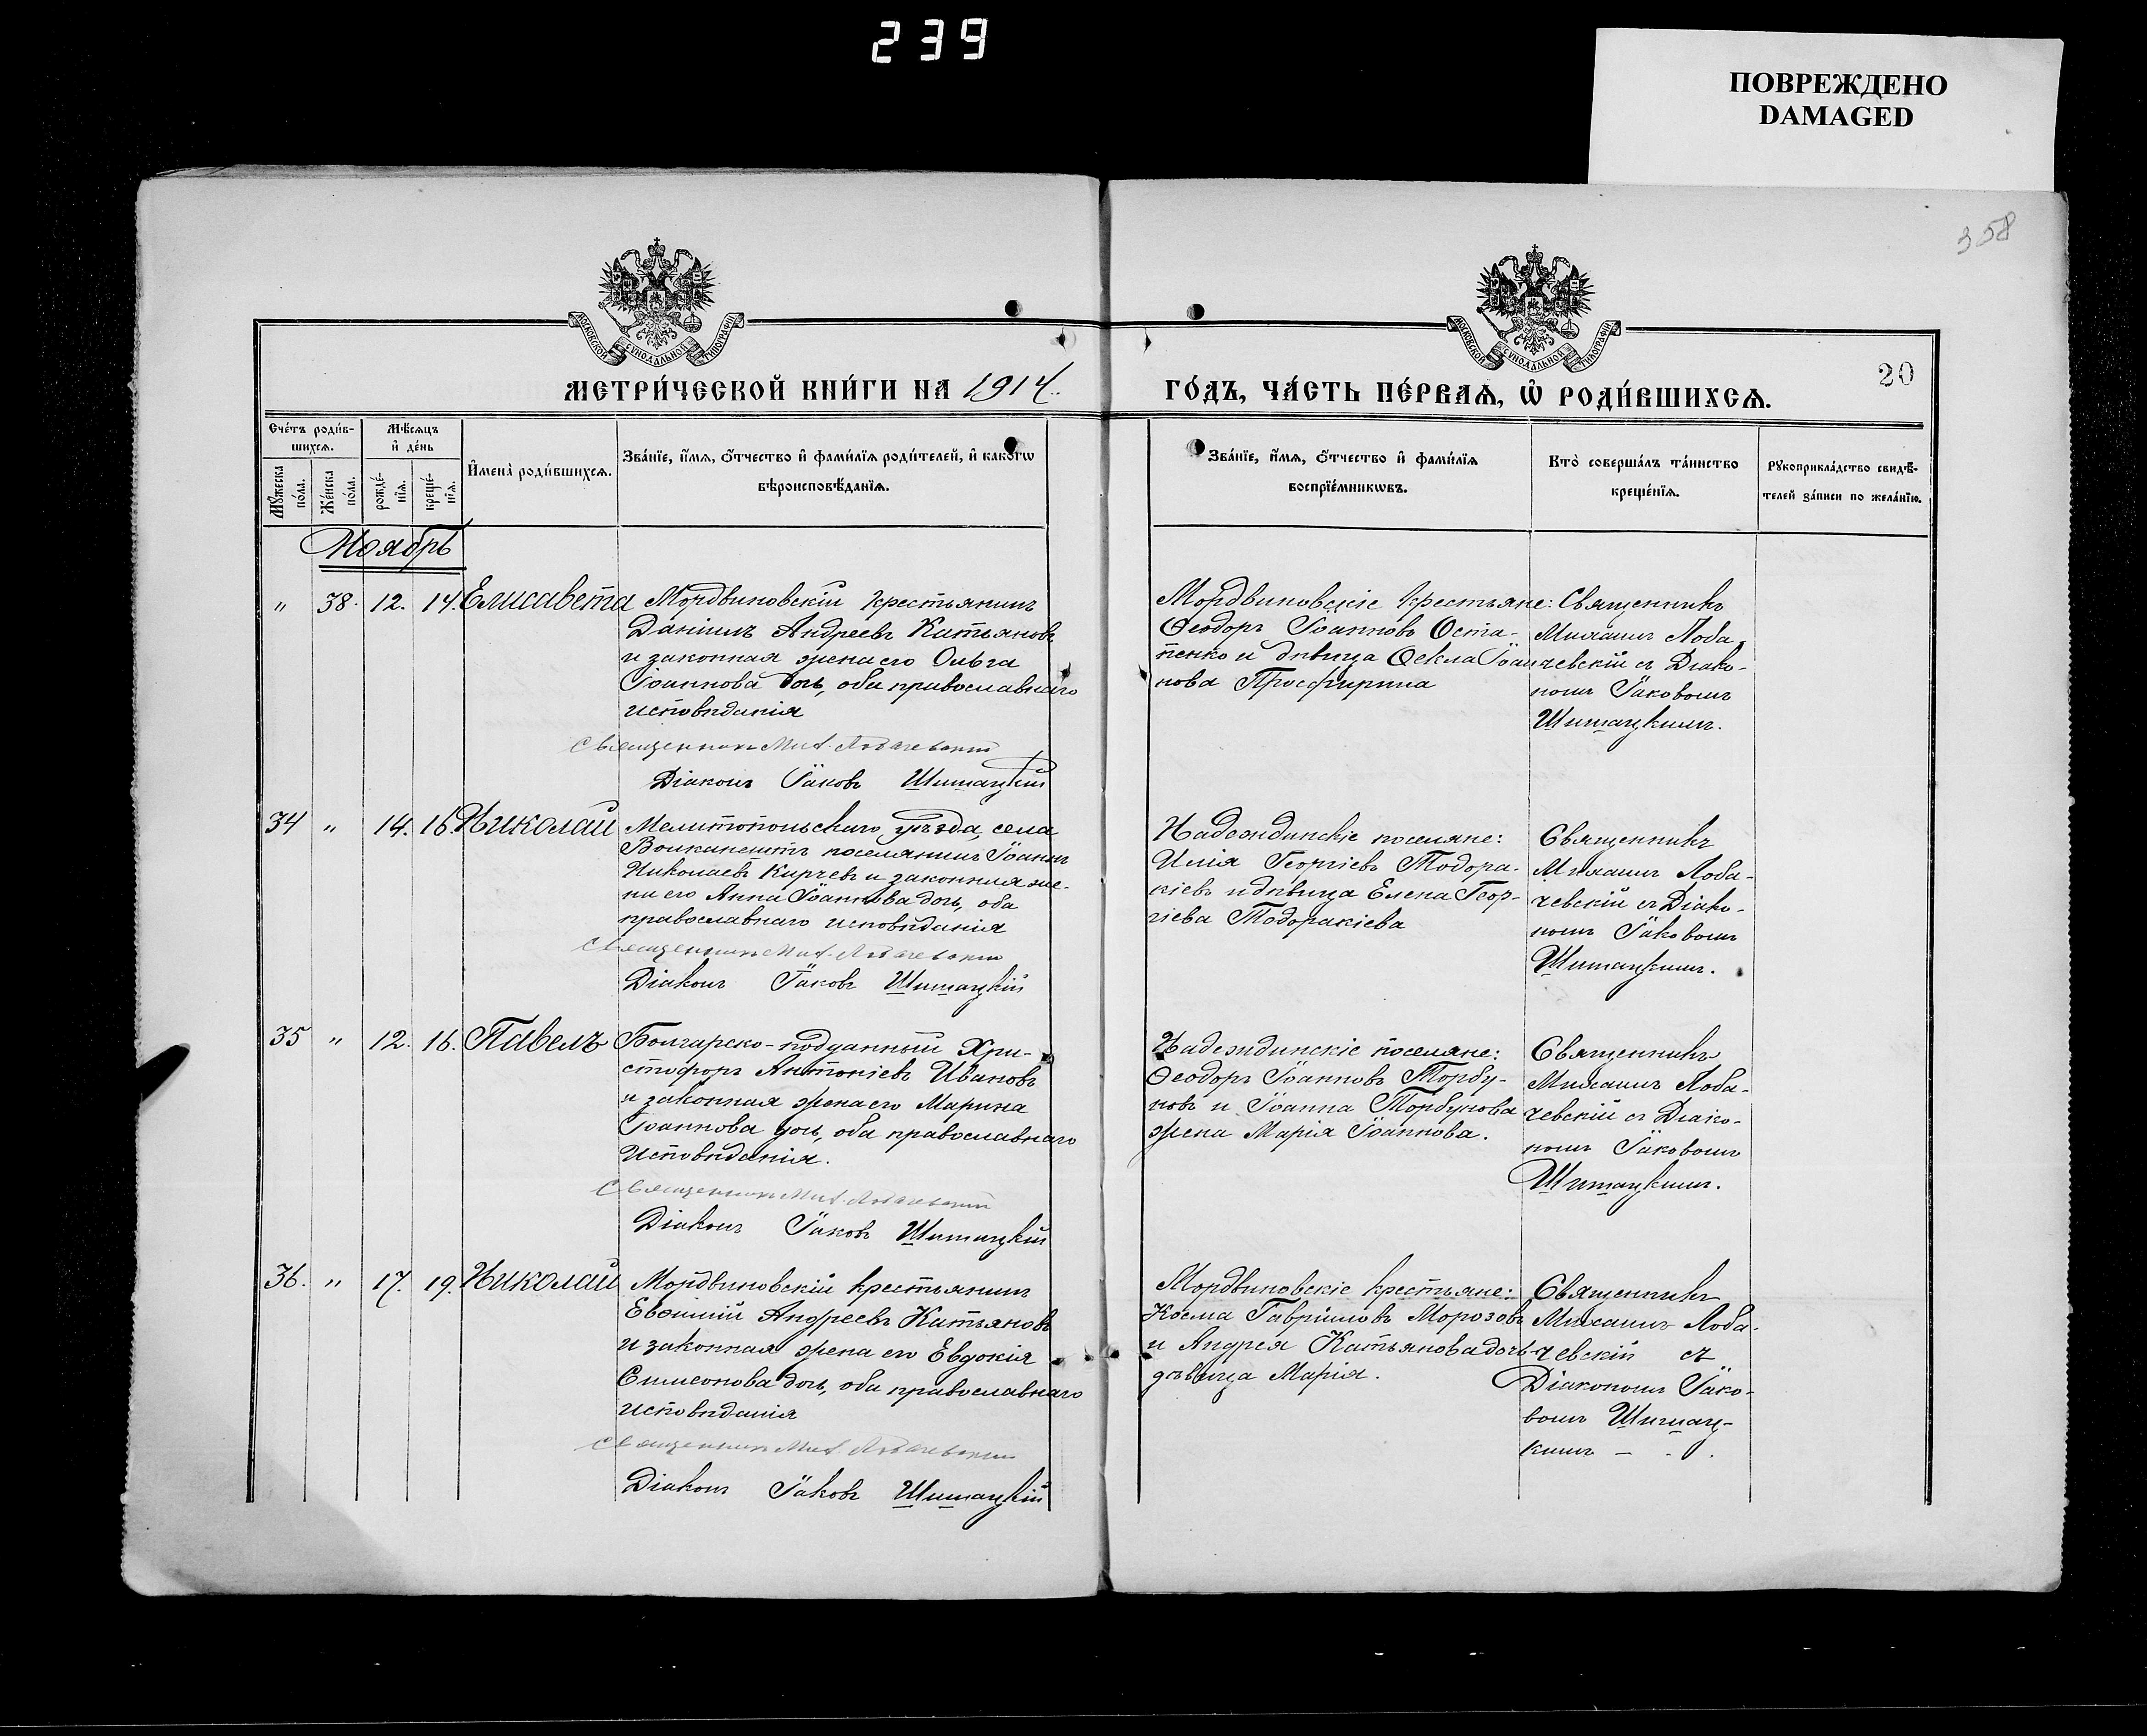 239
ПОВРЕЖДЕНО
DAMAGED
358
МОСКОВСКОЙ СѴНОДАЛЬНОЙ ТИПОГРАФІИ
МОСКОВСКОЙ СѴНОДАЛЬНОЙ ТИПОГРАФІИ
20
МЕТРИ́ЧЕСКОЙ КНИ́ГИ НА 1914.
ГО́ДЪ, ЧА́СТЬ ПЕ́РВАѦ, Ѡ҆ РОДИ́ВШИХСѦ.
Сче́тъ роди́в-
шихсѧ.
Мѣ́сѧцъ
и҆ де́нь
Мꙋ́жеска
по́ла.
Же́нска
по́ла.
рожде́-
нїѧ.
креще́-
нїѧ.
И҆мена̀ роди́вшихсѧ.
Зва́нїе, и҆́мѧ, ѻ҆́тчество и҆ фами́лїѧ роди́телей, и҆ како́гѡ
вѣроисповѣ́данїѧ.
Зва́нїе, и҆́мѧ, ѻ҆́тчество и҆ фами́лїѧ
воспрїе́мникѡвъ.
Кто̀ соверша́лъ та́инство
креще́нїѧ.
Рꙋкоприкла́дство свидѣ́-
телей за́писи по жела́нїю.
Ноябрь
" 38. 12. 14. Елисавета
Мордвиновскій крестьянинъ
Даніилъ Андреевъ Катьяновъ
и законная жена его Ольга
Іоаннова дочь, оба православнаго
исповѣданія
Священникъ Мих. Лобачевскій
Діаконъ Іаковъ Шишацкій
Мордвиновскіе крестьяне:
Ѳеодоръ Іоанновъ Оста-
пенко и дѣвица Ѳекла Іоан-
нова Просфирина
Священникъ
Михаилъ Лоба-
чевскій съ Діако-
номъ Іаковомъ
Шишацкимъ.
34 " 14. 16. Николай
Мелитопольскаго уѣзда, села
Волканештъ поселянинъ Іоаннъ
Николаевъ Кирчевъ и законная же-
на его Анна Іоаннова дочь, оба
православнаго исповѣданія
Священникъ Мих. Лобачевскій
Діаконъ Іаковъ Шишацкій
Надеждинскіе поселяне:
Илія Георгіевъ Тодора-
кіевъ и дѣвица Елена Геор-
гіева Тодоракіева
Священникъ
Михаилъ Лоба-
чевскій съ Діако-
номъ Іаковомъ
Шишацкимъ.
35 " 12. 16. Павелъ
Болгарско-подданный Хри-
стофоръ Антоніевъ Ивановъ
и законная жена его Марина
Іоаннова дочь, оба православнаго
исповѣданія.
Священникъ Мих. Лобачевскій
Діаконъ Іаковъ Шишацкій
Надеждинскіе поселяне:
Ѳеодоръ Іоанновъ Торбу-
новъ и Іоанна Торбунова
жена Марія Іоаннова.
Священникъ
Михаилъ Лоба-
чевскій съ Діако-
номъ Іаковомъ
Шишацкимъ.
36. " 17. 19. Николай
Мордвиновскій крестьянинъ
Евѳимій Андреевъ Катьяновъ
и законная жена его Евдокія
Симеонова дочь, оба православнаго
исповѣданія
Священникъ Мих. Лобачевскій
Діаконъ Іаковъ Шишацкій
Мордвиновскіе крестьяне:
Косма Гавріиловъ Морозовъ
и Андрея Катьянова дочь
дѣвица Марія.
Священникъ
Михаилъ Лоба-
чевскій съ
Діакономъ Іако-
вомъ Шишац-
кимъ — . .